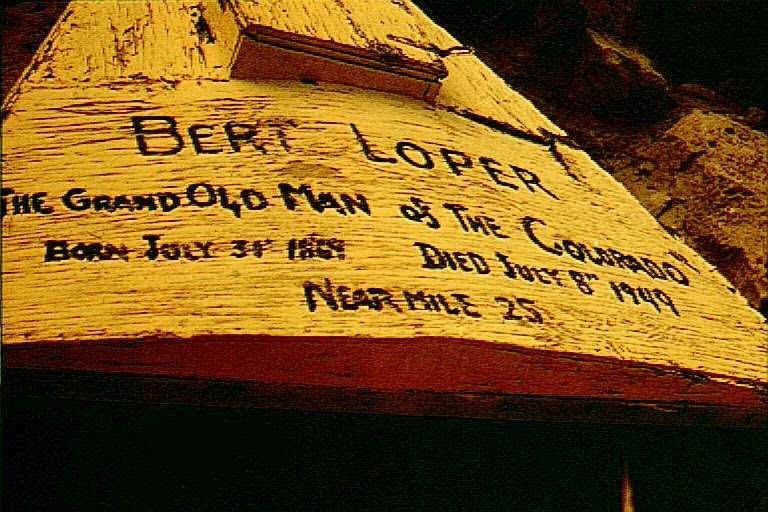 BERT LOPER
THE GRAND OLD MAN OF THE COLORADO"
BORN JULY 31ST 1869 DIED JULY 8TH 1949
NEAR MILE 25